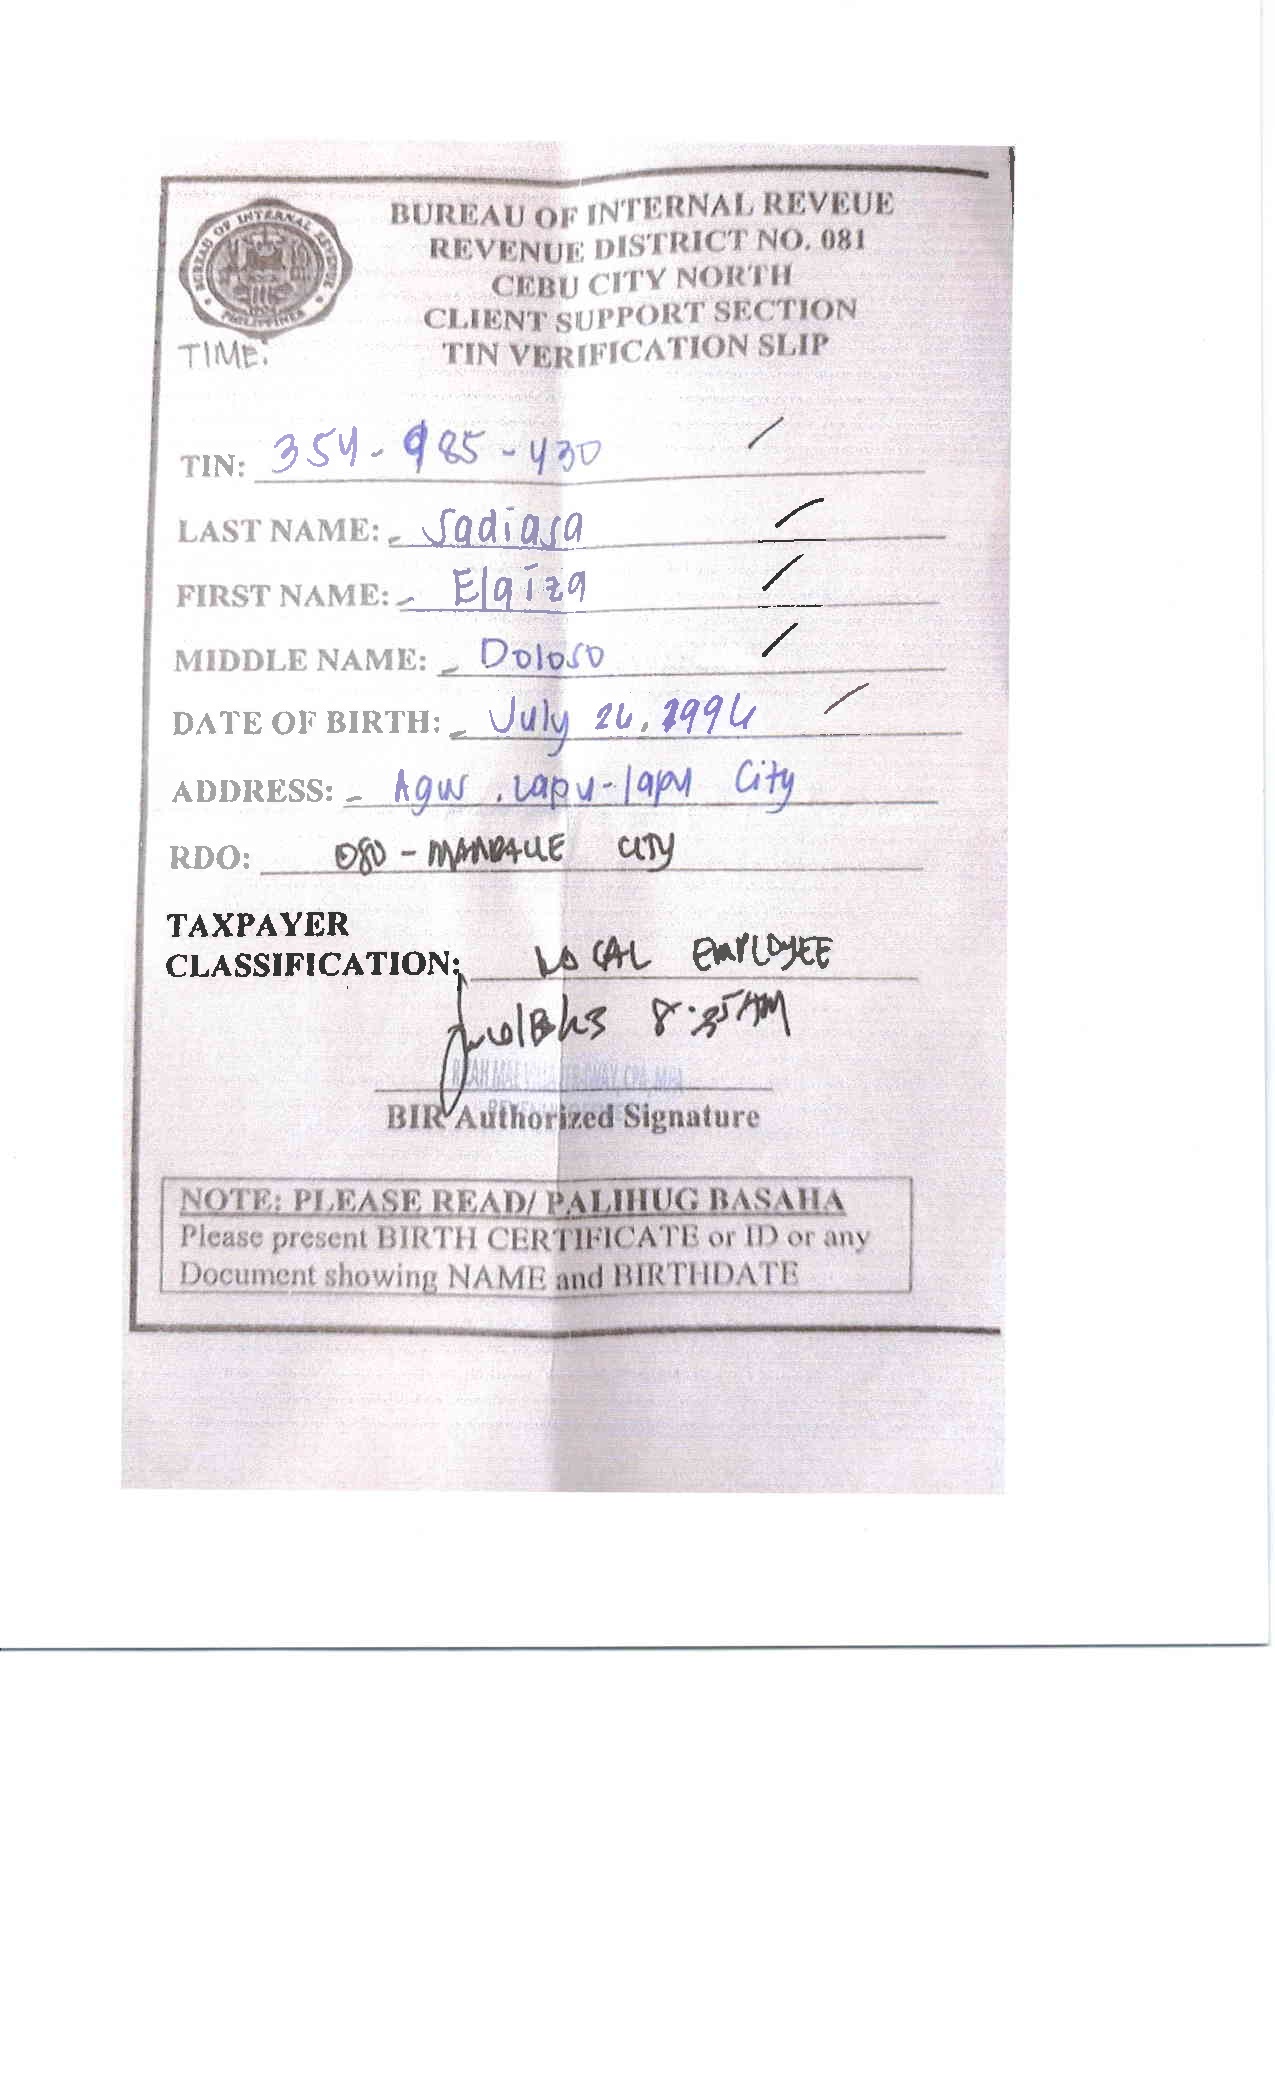 BUREAU OF INTERNAL REVEUE
REVENUE DISTRICT NO. 081
CEBU CITY NORTH
CLIENT SUPPORT SECTION
TIN VERIFICATION SLIP
BUREAU OF INTERNAL REVENUE
PHILIPPINES
TIME:
TIN: 354-985-430
LAST NAME: - Sadiasa
FIRST NAME: - Elaiza
MIDDLE NAME: - Doloso
DATE OF BIRTH: - July 26, 1996
ADDRESS: - Agus, Lapu-lapu City
RDO: 080 - MANDAUE CITY
TAXPAYER
CLASSIFICATION: LOCAL EMPLOYEE
8:35AM
BIR Authorized Signature
NOTE: PLEASE READ/ PALIHUG BASAHA
Please present BIRTH CERTIFICATE or ID or any
Document showing NAME and BIRTHDATE